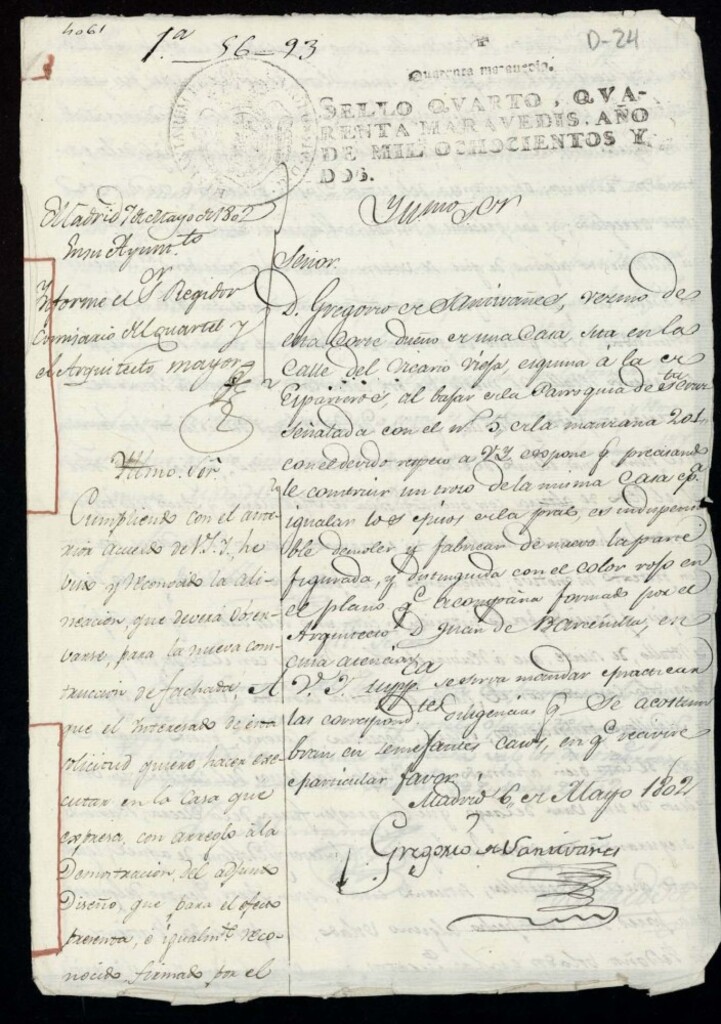 4061
1.ª 56-93
D-24
Quarenta maravedis.
SELLO QVARTO, QVA-
RENTA MARAVEDIS, AÑO
DE MIL OCHOCIENTOS Y
DOS.
Yllmo Sor
Madrid 7 de Mayo de 1802
En su Ayunt.to
Ynforme el Sor Regidor
Comisario del Quartel y
el Arquitecto mayor
Yllmo. Señor
Cumpliendo con el ante
rior acuerdo de V.S.I., he
visto y reconocido la ali-
neacion, que deverá obser-
varse, para la nueva cons-
trucción de fachada,
que el Interesado de esta
solicitud quiere hacer exe-
cutar en la Casa que
expresa, con arreglo á la
Demostracion del adjunto
Diseño, que para el efecto
presenta, é igualmte reco-
nocido firmado por el
Señor
D. Gregorio de Santivañes, vezino de
esta Corte dueño de una Casa, sita en la
Calle del Vicario Viejo, esquina á la de
Esparteros, al bajar de la Parroquia de Sta Cruz
señalada con el nº 5, de la manzana 201,
con el devido respeto a V.I. expone q precisando
le construir un trozo de la misma Casa pª
igualar los pisos de la pral, es indispensa
ble demoler y fabricar de nuevo la parte
figurada, y distinguida con el color roso en
el plano qe acompaña formado por el
Arquitecto D. Juan de Barcenilla, en
cuia atencion
A V. I. suppca se sirva mandar practicar
las correspondtes diligencias q se acostum
bran en semejantes casos, en qe recivirá
particular favor.
Madrid 6 de Mayo 1802
Gregorio de Santivañes